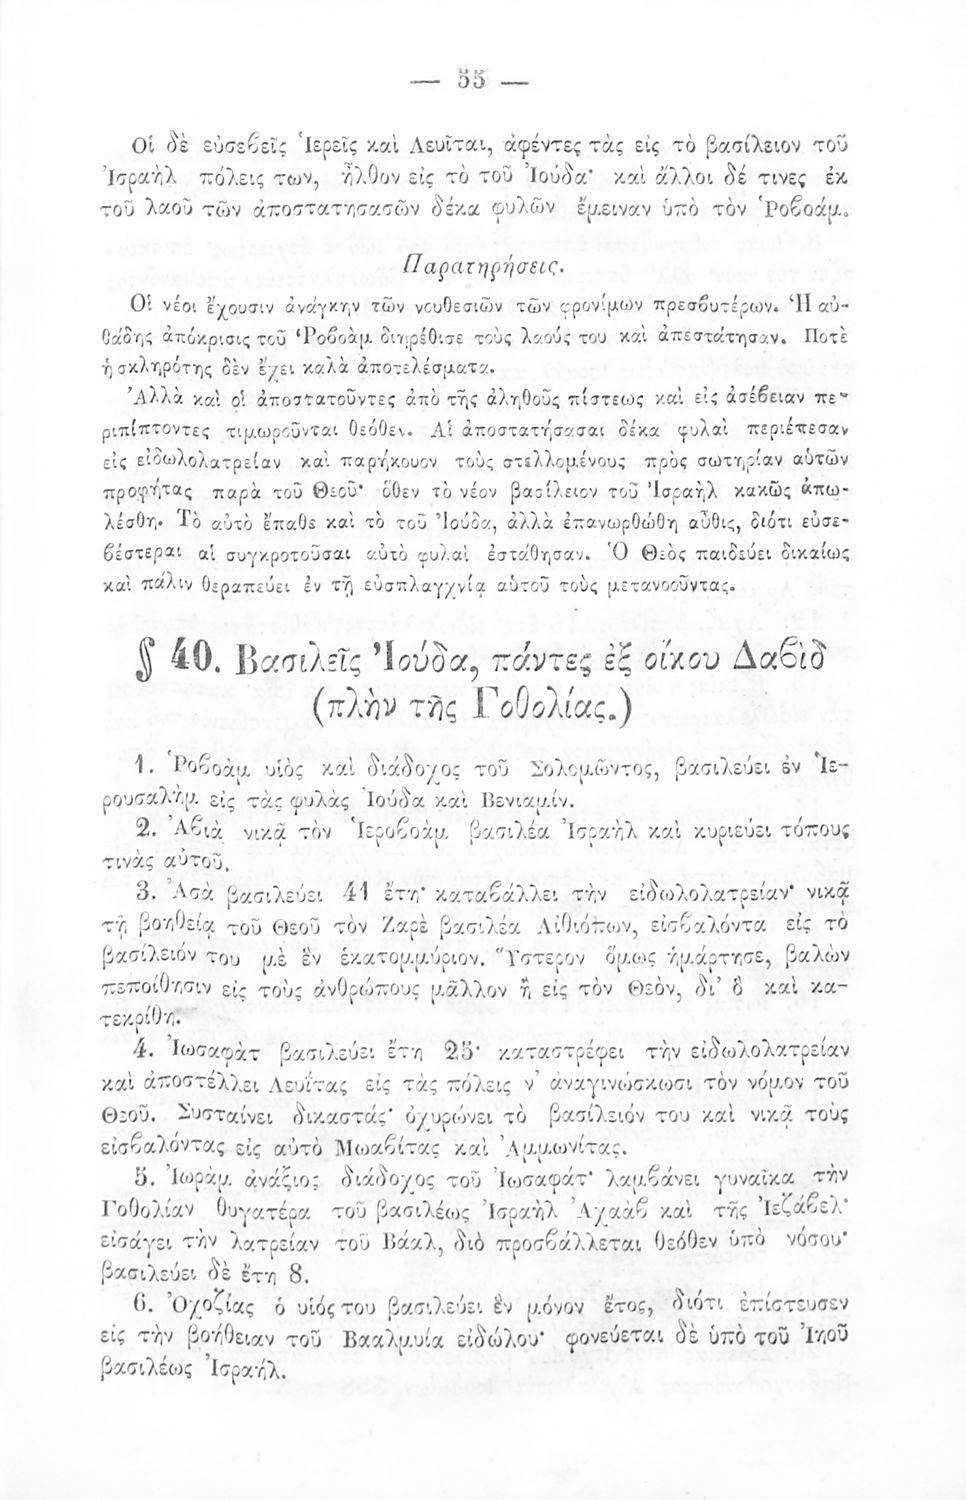 — 55 —
Οἱ δὲ εὐσεβεῖς Ἱερεῖς καὶ Λευῖται, ἀφέντες τὰς εἰς τὸ βασίλειον τοῦ
Ἰσραὴλ πόλεις των, ἦλθον εἰς τὸ τοῦ Ἰούδα· καὶ ἄλλοι δέ τινες ἐκ
τοῦ λαοῦ τῶν ἀποστατησασῶν δέκα φυλῶν ἔμειναν ὑπὸ τὸν Ῥοβοάμ.
Παρατηρήσεις.
Οἱ νέοι ἔχουσιν ἀνάγκην τῶν νουθεσιῶν τῶν φρονίμων πρεσβυτέρων. Ἡ αὐ-
θάδης ἀπόκρισις τοῦ Ῥοβοὰμ διηρέθισε τοὺς λαούς του καὶ ἀπεστάτησαν. Ποτὲ
ἡ σκληρότης δὲν ἔχει καλὰ ἀποτελέσματα.
Ἀλλὰ καὶ οἱ ἀποστατοῦντες ἀπὸ τῆς ἀληθοῦς πίστεως καὶ εἰς ἀσέβειαν πε-
ριπίπτοντες τιμωροῦνται θεόθεν. Αἱ ἀποστατήσασαι δέκα φυλαὶ περιέπεσαν
εἰς εἰδωλολατρείαν καὶ παρήκουον τοὺς στελλομένους πρὸς σωτηρίαν αὑτῶν
προφήτας παρὰ τοῦ Θεοῦ· ὅθεν τὸ νέον βασίλειον τοῦ Ἰσραὴλ κακῶς ἀπω-
λέσθη. Τὸ αὐτὸ ἔπαθε καὶ τὸ τοῦ Ἰούδα, ἀλλὰ ἐπανωρθώθη αὖθις, διότι εὐσε-
βέστεραι αἱ συγκροτοῦσαι αὐτὸ φυλαὶ ἐστάθησαν. Ὁ Θεὸς παιδεύει δικαίως
καὶ πάλιν θεραπεύει ἐν τῇ εὐσπλαγχνίᾳ αὑτοῦ τοὺς μετανοοῦντας.
§ 40. Βασιλεῖς Ἰούδα, πάντες ἐξ οἴκου Δαβὶδ
(πλὴν τῆς Γοθολίας.)
1. Ῥοβοὰμ υἱὸς καὶ διάδοχος τοῦ Σολομῶντος, βασιλεύει ἐν Ἱε-
ρουσαλὴμ εἰς τὰς φυλὰς Ἰούδα καὶ Βενιαμίν.
2. Ἀβιὰ νικᾷ τὸν Ἱεροβοὰμ βασιλέα Ἰσραὴλ καὶ κυριεύει τόπους
τινὰς αὐτοῦ.
3. Ἀσὰ βασιλεύει 41 ἔτη· καταβάλλει τὴν εἰδωλολατρείαν· νικᾷ
τῇ βοηθείᾳ τοῦ Θεοῦ τὸν Ζαρὲ βασιλέα Αἰθιόπων, εἰσβαλόντα εἰς τὸ
βασίλειόν του μὲ ἓν ἑκατομμύριον. Ὕστερον ὅμως ἡμάρτησε, βαλὼν
πεποίθησιν εἰς τοὺς ἀνθρώπους μᾶλλον ἢ εἰς τὸν Θεὸν, δι' ὃ καὶ κα-
τεκρίθη.
4. Ἰωσαφὰτ βασιλεύει ἔτη 25· καταστρέφει τὴν εἰδωλολατρείαν
καὶ ἀποστέλλει Λευΐτας εἰς τὰς πόλεις ν' ἀναγινώσκωσι τὸν νόμον τοῦ
Θεοῦ. Συσταίνει δικαστάς· ὀχυρώνει τὸ βασίλειόν του καὶ νικᾷ τοὺς
εἰσβαλόντας εἰς αὐτὸ Μωαβίτας καὶ Ἀμμωνίτας.
5. Ἰωρὰμ ἀνάξιος διάδοχος τοῦ Ἰωσαφάτ· λαμβάνει γυναῖκα τὴν
Γοθολίαν θυγατέρα τοῦ βασιλέως Ἰσραὴλ Ἀχαὰβ καὶ τῆς Ἰεζάβελ·
εἰσάγει τὴν λατρείαν τοῦ Βάαλ, διὸ προσβάλλεται θεόθεν ὑπὸ νόσου·
βασιλεύει δὲ ἔτη 8.
6. Ὀχοζίας ὁ υἱός του βασιλεύει ἓν μόνον ἔτος, διότι ἐπίστευσεν
εἰς τὴν βοήθειαν τοῦ Βααλμυία εἰδώλου· φονεύεται δὲ ὑπὸ τοῦ Ἰηοῦ
βασιλέως Ἰσραήλ.